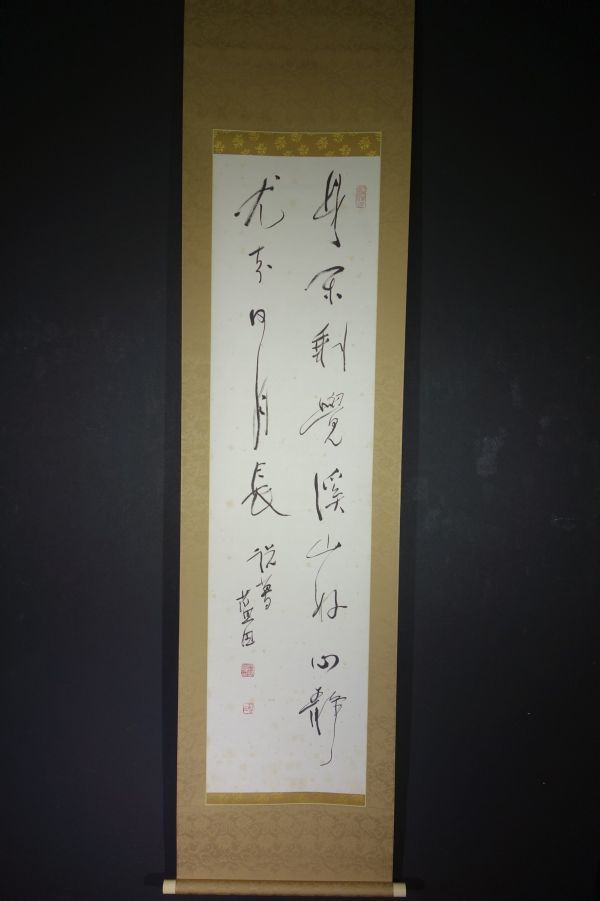 身閑剰覺溪山好心静
尤知日月長
藍田